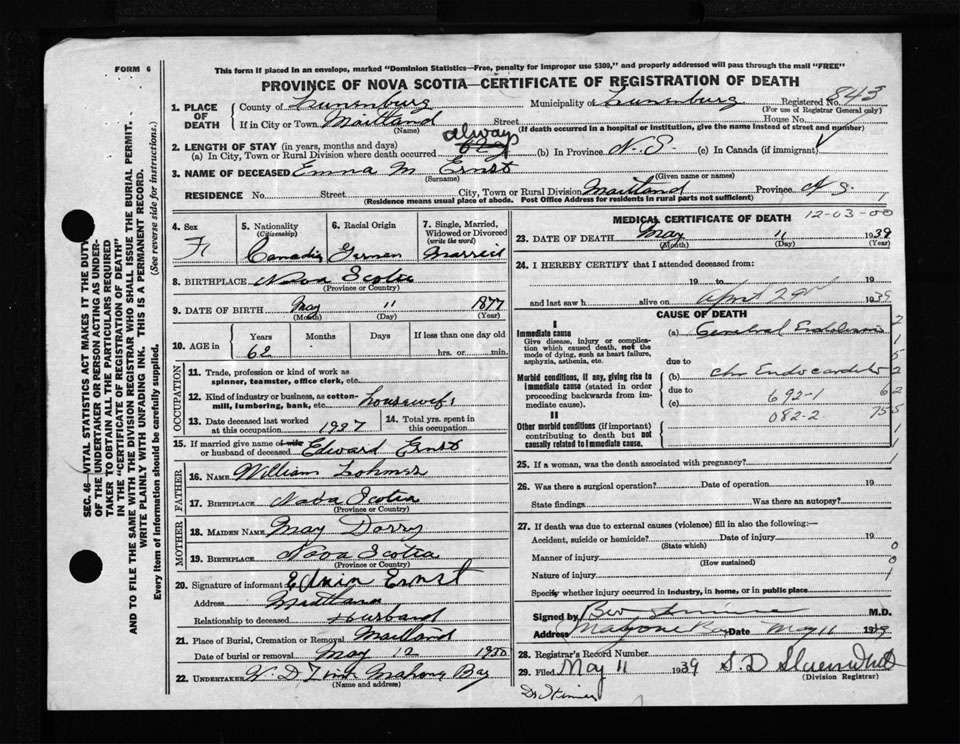 FORM 6
This form if placed in an envelope, marked "Dominion Statistics—Free, penalty for improper use $300," and properly addressed will pass through the mail "FREE"
PROVINCE OF NOVA SCOTIA—CERTIFICATE OF REGISTRATION OF DEATH
SEC. 46—VITAL STATISTICS ACT MAKES IT THE DUTY
OF THE UNDERTAKER OR PERSON ACTING AS UNDER-
TAKER TO OBTAIN ALL THE PARTICULARS REQUIRED
IN THE "CERTIFICATE OF REGISTRATION OF DEATH"
AND TO FILE THE SAME WITH THE DIVISION REGISTRAR WHO SHALL ISSUE THE BURIAL PERMIT.
WRITE PLAINLY WITH UNFADING INK. THIS IS A PERMANENT RECORD.
Every item of information should be carefully supplied. (See reverse side for instructions.)
1. PLACE OF DEATH County of Lunenburg Municipality of Lunenburg Registered No. 843
(For use of Registrar General only)
If in City or Town Maitland Street House No.
(Name) (If death occurred in a hospital or institution, give the name instead of street and number)
always
2. LENGTH OF STAY (in years, months and days)
(a) In City, Town or Rural Division where death occurred (b) In Province N.S. (c) In Canada (if immigrant)
3. NAME OF DECEASED Emma M Ernst
(Surname) (Given name or names)
RESIDENCE No. Street City, Town or Rural Division Maitland Province N S.
(Residence means usual place of abode. Post Office Address for residents in rural parts not sufficient)
4. Sex F
5. Nationality (Citizenship) Canadian
6. Racial Origin German
7. Single, Married, Widowed or Divorced (write the word) Married
8. BIRTHPLACE Nova Scotia
(Province or Country)
9. DATE OF BIRTH May 11 1877
(Month) (Day) (Year)
10. AGE in Years 62 Months Days If less than one day old hrs. or min.
OCCUPATION
11. Trade, profession or kind of work as spinner, teamster, office clerk, etc.
12. Kind of industry or business, as cotton-mill, lumbering, bank, etc. housewife
13. Date deceased last worked at this occupation 1937
14. Total yrs. spent in this occupation
15. If married give name of wife or husband of deceased Edward Ernst
FATHER
16. NAME William Lohmer
17. BIRTHPLACE Nova Scotia
(Province or Country)
MOTHER
18. MAIDEN NAME May Dorry
19. BIRTHPLACE Nova Scotia
(Province or Country)
20. Signature of informant Ernst
Address Maitland
Relationship to deceased Husband
21. Place of Burial, Cremation or Removal Maitland
Date of burial or removal May 12
22. UNDERTAKER V. D Zink Mahone Bay
(Name and address)
MEDICAL CERTIFICATE OF DEATH 12-03-00
23. DATE OF DEATH May 11 1939
(Month) (Day) (Year)
24. I HEREBY CERTIFY that I attended deceased from:
19 to 19
and last saw h alive on April 29 1939
CAUSE OF DEATH
I
Immediate cause
Give disease, injury or complication which caused death, not the mode of dying, such as heart failure, asphyxia, asthenia, etc.
(a) General
due to
Morbid conditions, if any, giving rise to immediate cause (stated in order proceeding backwards from immediate cause).
(b) Chr Endocarditis
due to
(c) 692-1
082-2
II
Other morbid conditions (if important) contributing to death but not causally related to immediate cause.
25. If a woman, was the death associated with pregnancy?
26. Was there a surgical operation? Date of operation 19
State findings Was there an autopsy?
27. If death was due to external causes (violence) fill in also the following:—
Accident, suicide or homicide? Date of injury 19
(State which)
Manner of injury
(How sustained)
Nature of injury
Specify whether injury occurred in industry, in home, or in public place
Signed by M.D.
Address Mahone Bay Date May 11 1939
28. Registrar's Record Number
29. Filed May 11 1939 S. D
(Division Registrar)